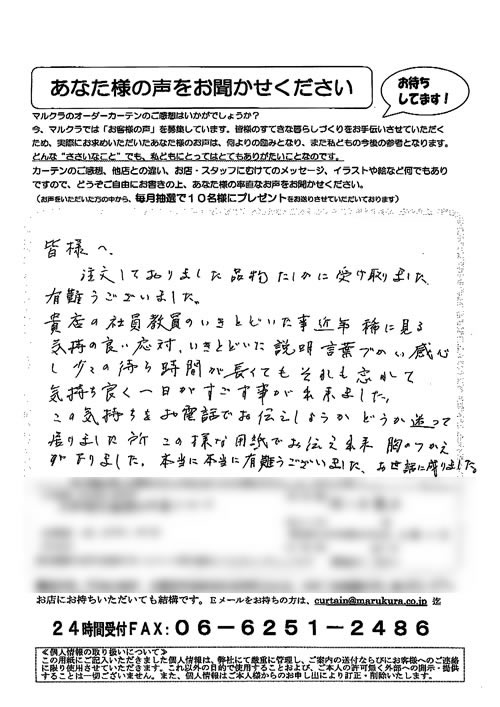 あなた様の声をお聞かせください
お待ち
してます!
マルクラのオーダーカーテンのご感想はいかがでしょうか?
今、マルクラでは「お客様の声」を募集しています。皆様のすてきな暮らしづくりをお手伝いさせていただく
ため、実際にお求めいただいたあなた様のお声は、何よりの励みとなり、また私どもの今後の参考となります。
どんな“ささいなこと”でも、私どもにとってはとてもありがたいことなのです。
カーテンのご感想、他店との違い、お店・スタッフにむけてのメッセージ、イラストや絵など何でもあり
ですので、どうぞご自由にお書きの上、あなた様の率直なお声をお聞かせください。
(お声をいただいた方の中から、毎月抽選で10名様にプレゼントをお送りさせていただいております)
皆様へ、
注文しておりました品物たしかに受け取りました
有難うございました。
貴店の社員教員のいきとどいた事近年稀に見る
気持の良い応対、いきとどいた説明言葉づかい感心
し少々の待ち時間が長くてもそれも忘れて
気持ち良く一日がすごす事が出来ました。
この気持ちをお電話でお伝えしようかどうか迷って
居りました所この様な用紙でお伝え出来胸のつかえ
がおりました。本当に本当に有難うございました、お世話に成りました。
お店にお持ちいただいても結構です。Eメールをお持ちの方は、curtain@marukura.co.jp 迄
24時間受付FAX:06-6251-2486
≪個人情報の取り扱いについて≫
この用紙にご記入いただきました個人情報は、弊社にて厳重に管理し、ご案内の送付ならびにお客様へのご連絡
に限り使用させていただきます。これ以外の目的で使用することおよび、ご本人の許可無く外部への開示・提供
することは一切ございません。また、個人情報はご本人様からのお申し出により訂正・削除いたします。